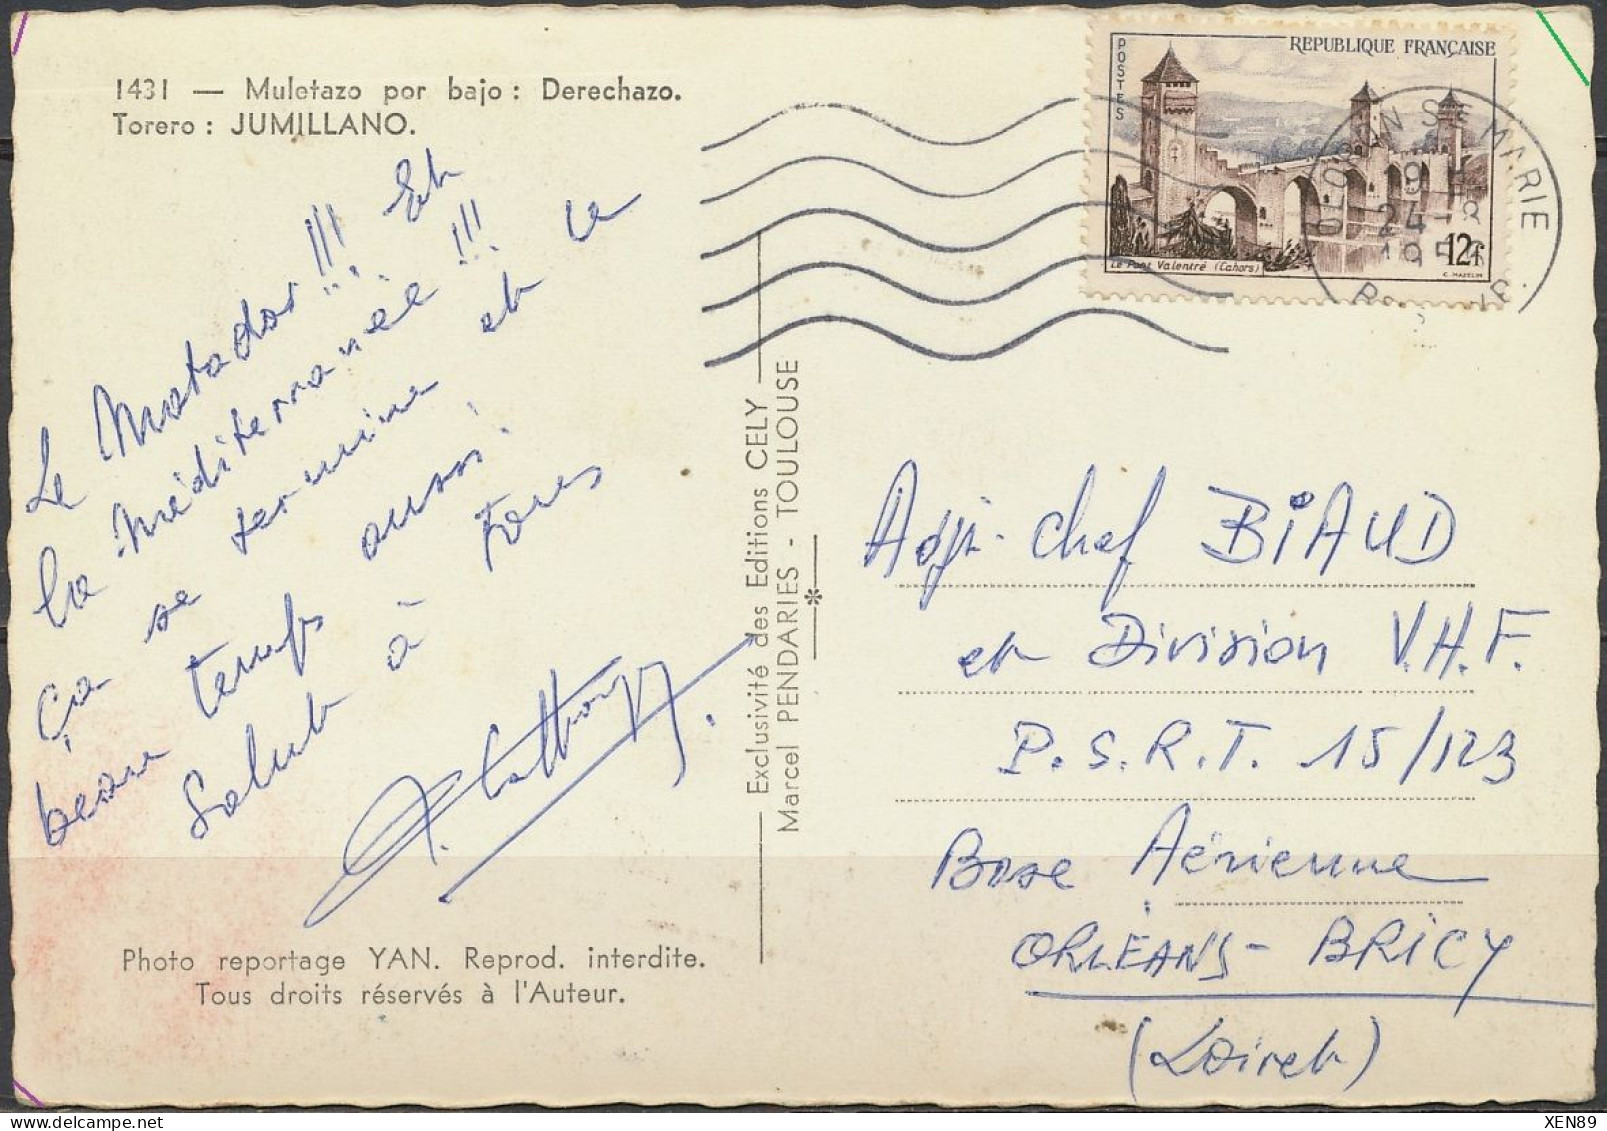 1431 — Muletazo por bajo : Derechazo.
Torero : JUMILLANO.
Le Matador !!! Et
la Méditerranée !!! et
ça se termine et le
beau temps aussi.
Salut à tous
Exclusivité des Editions CELY
Marcel PENDARIES - TOULOUSE
Photo reportage YAN. Reprod. interdite.
Tous droits réservés à l'Auteur.
POSTES
REPUBLIQUE FRANÇAISE
Le Pont Valentré (Cahors)
12f
C. MAZELIN
OLORON STE MARIE
19 H
24 - 8
Adji-chef BIAUD
et Division V.H.F.
P.S.R.T. 15/123
Base Aérienne
ORLÉANS - BRICY
(Loiret)
XEN89